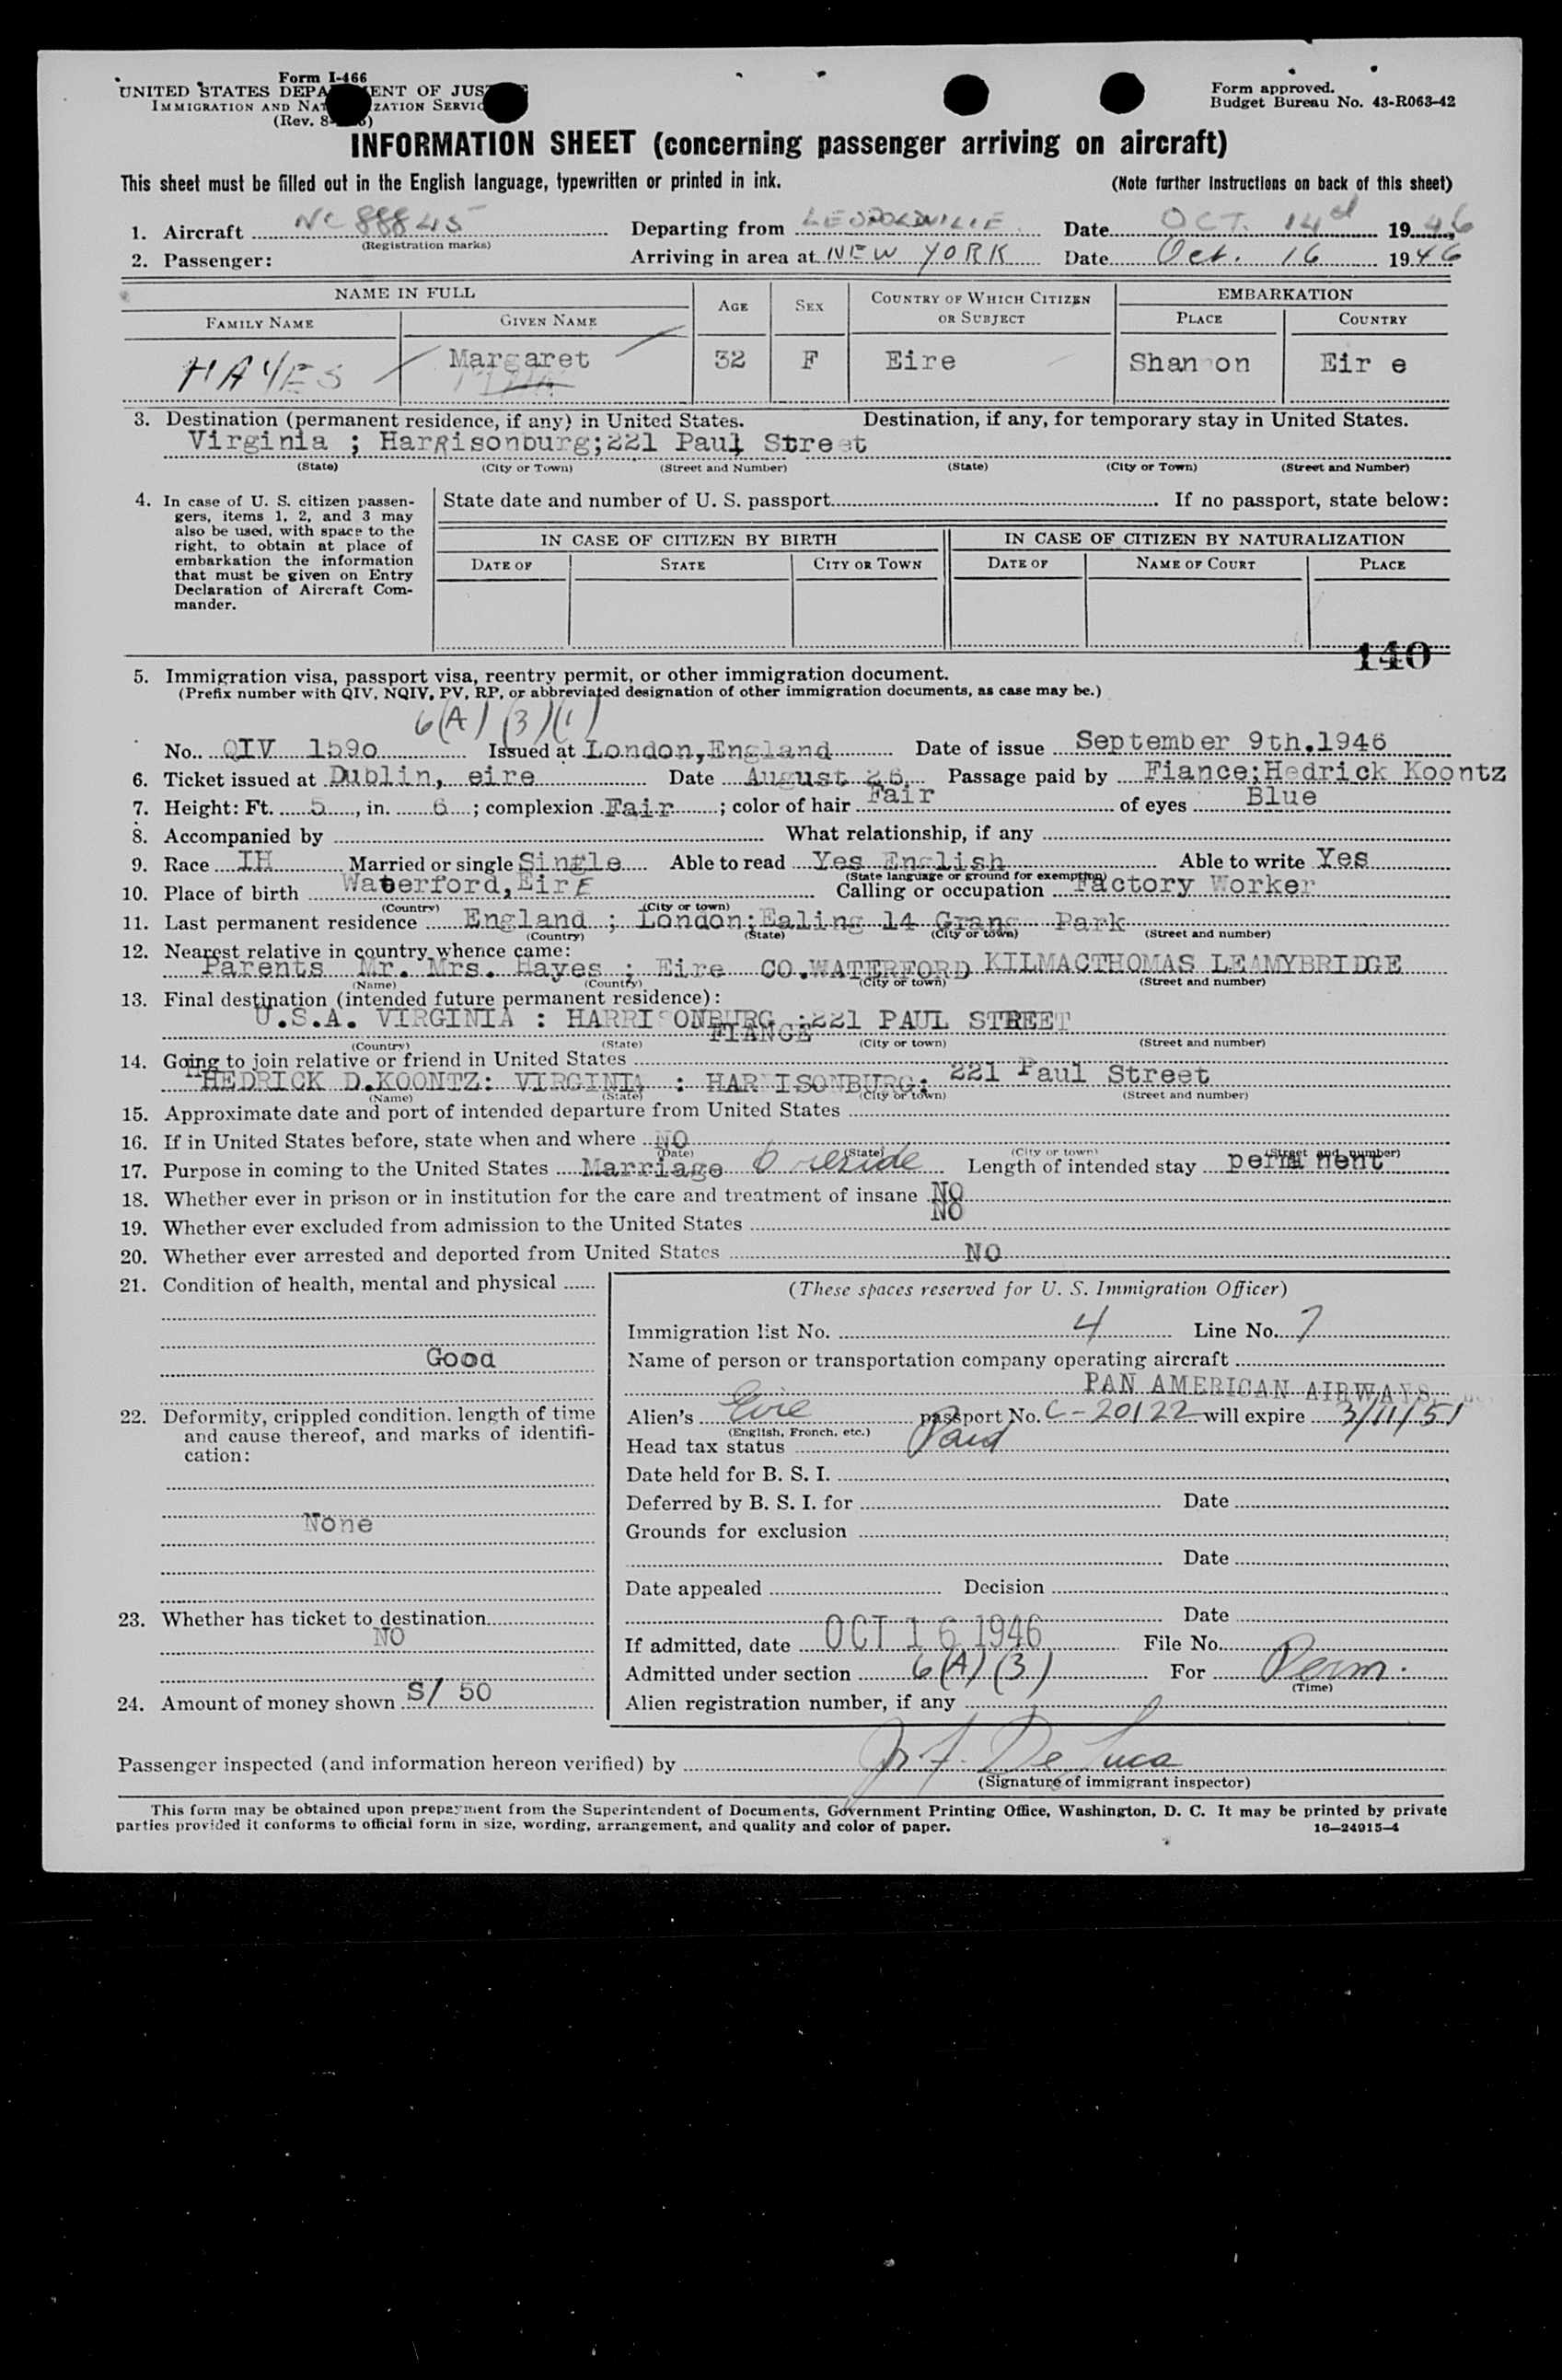 Form I-466
UNITED STATES DEPA ENT OF JUS
IMMIGRATION AND NAT ZATION SERVIC
(Rev. 8- )
Form approved.
Budget Bureau No. 43-R063-42
INFORMATION SHEET (concerning passenger arriving on aircraft)
This sheet must be filled out in the English language, typewritten or printed in ink. (Note further instructions on back of this sheet)
1. Aircraft NC 88845 Departing from LEOPOLDVILLE Date OCT. 14 1946
(Registration marks)
2. Passenger: Arriving in area at NEW YORK Date Oct. 16 1946
NAME IN FULL AGE SEX COUNTRY OF WHICH CITIZEN OR SUBJECT EMBARKATION
FAMILY NAME GIVEN NAME PLACE COUNTRY
HAYES Margaret 32 F Eire Shan on Eir e
3. Destination (permanent residence, if any) in United States. Destination, if any, for temporary stay in United States.
Virginia ; Harrisonburg;221 Paul Street
(State) (City or Town) (Street and Number) (State) (City or Town) (Street and Number)
4. In case of U. S. citizen passen- State date and number of U. S. passport If no passport, state below:
gers, items 1, 2, and 3 may
also be used, with space to the
right, to obtain at place of
embarkation the information
that must be given on Entry
Declaration of Aircraft Com-
mander.
IN CASE OF CITIZEN BY BIRTH IN CASE OF CITIZEN BY NATURALIZATION
DATE OF STATE CITY OR TOWN DATE OF NAME OF COURT PLACE
140
5. Immigration visa, passport visa, reentry permit, or other immigration document.
(Prefix number with QIV, NQIV, PV, RP, or abbreviated designation of other immigration documents, as case may be.)
6(A) (3)(1)
No. QIV 1590 Issued at London,England Date of issue September 9th.1946
6. Ticket issued at Dublin, eire Date August 26 Passage paid by Fiance;Hedrick Koontz
7. Height: Ft. 5, in. 6; complexion Fair; color of hair Fair of eyes Blue
8. Accompanied by What relationship, if any
9. Race IH Married or single Single Able to read Yes English Able to write Yes
(State language or ground for exemption)
10. Place of birth Waterford,Eire Calling or occupation Factory Worker
(Country) (City or town)
11. Last permanent residence England ; London;Ealing 14 Grang Park
(Country) (State) (City or town) (Street and number)
12. Nearest relative in country whence came:
Parents Mr. Mrs. Hayes ; Eire CO.WATERFORD KILMACTHOMAS LEAMYBRIDGE
(Name) (Country) (City or town) (Street and number)
13. Final destination (intended future permanent residence):
U.S.A. VIRGINIA : HARRISONBURG :221 PAUL STREET
(Country) (State) (City or town) (Street and number)
14. Going to join relative or friend in United States FIANCE
HEDRICK D.KOONTZ: VIRGINIA : HAR ISONBURG: 221 Paul Street
(Name) (State) (City or town) (Street and number)
15. Approximate date and port of intended departure from United States
16. If in United States before, state when and where NO
(Date) (State) (City or town) (Street and number)
17. Purpose in coming to the United States Marriage reside Length of intended stay perma nent
18. Whether ever in prison or in institution for the care and treatment of insane NO
19. Whether ever excluded from admission to the United States NO
20. Whether ever arrested and deported from United States NO
21. Condition of health, mental and physical
Good
22. Deformity, crippled condition, length of time
and cause thereof, and marks of identifi-
cation:
None
23. Whether has ticket to destination
NO
24. Amount of money shown S/ 50
(These spaces reserved for U. S. Immigration Officer)
Immigration list No. 4 Line No. 7
Name of person or transportation company operating aircraft
PAN AMERICAN AIRWAYS
Alien's Eire passport No. C-20122 will expire 3/11/51
(English, French, etc.)
Head tax status Paid
Date held for B. S. I.
Deferred by B. S. I. for Date
Grounds for exclusion
Date
Date appealed Decision
Date
If admitted, date OCT 16 1946 File No.
Admitted under section 6(A)(3) For Perm.
(Time)
Alien registration number, if any
Passenger inspected (and information hereon verified) by De Luca
(Signature of immigrant inspector)
This form may be obtained upon prepayment from the Superintendent of Documents, Government Printing Office, Washington, D. C. It may be printed by private
parties provided it conforms to official form in size, wording, arrangement, and quality and color of paper. 16—24915-4